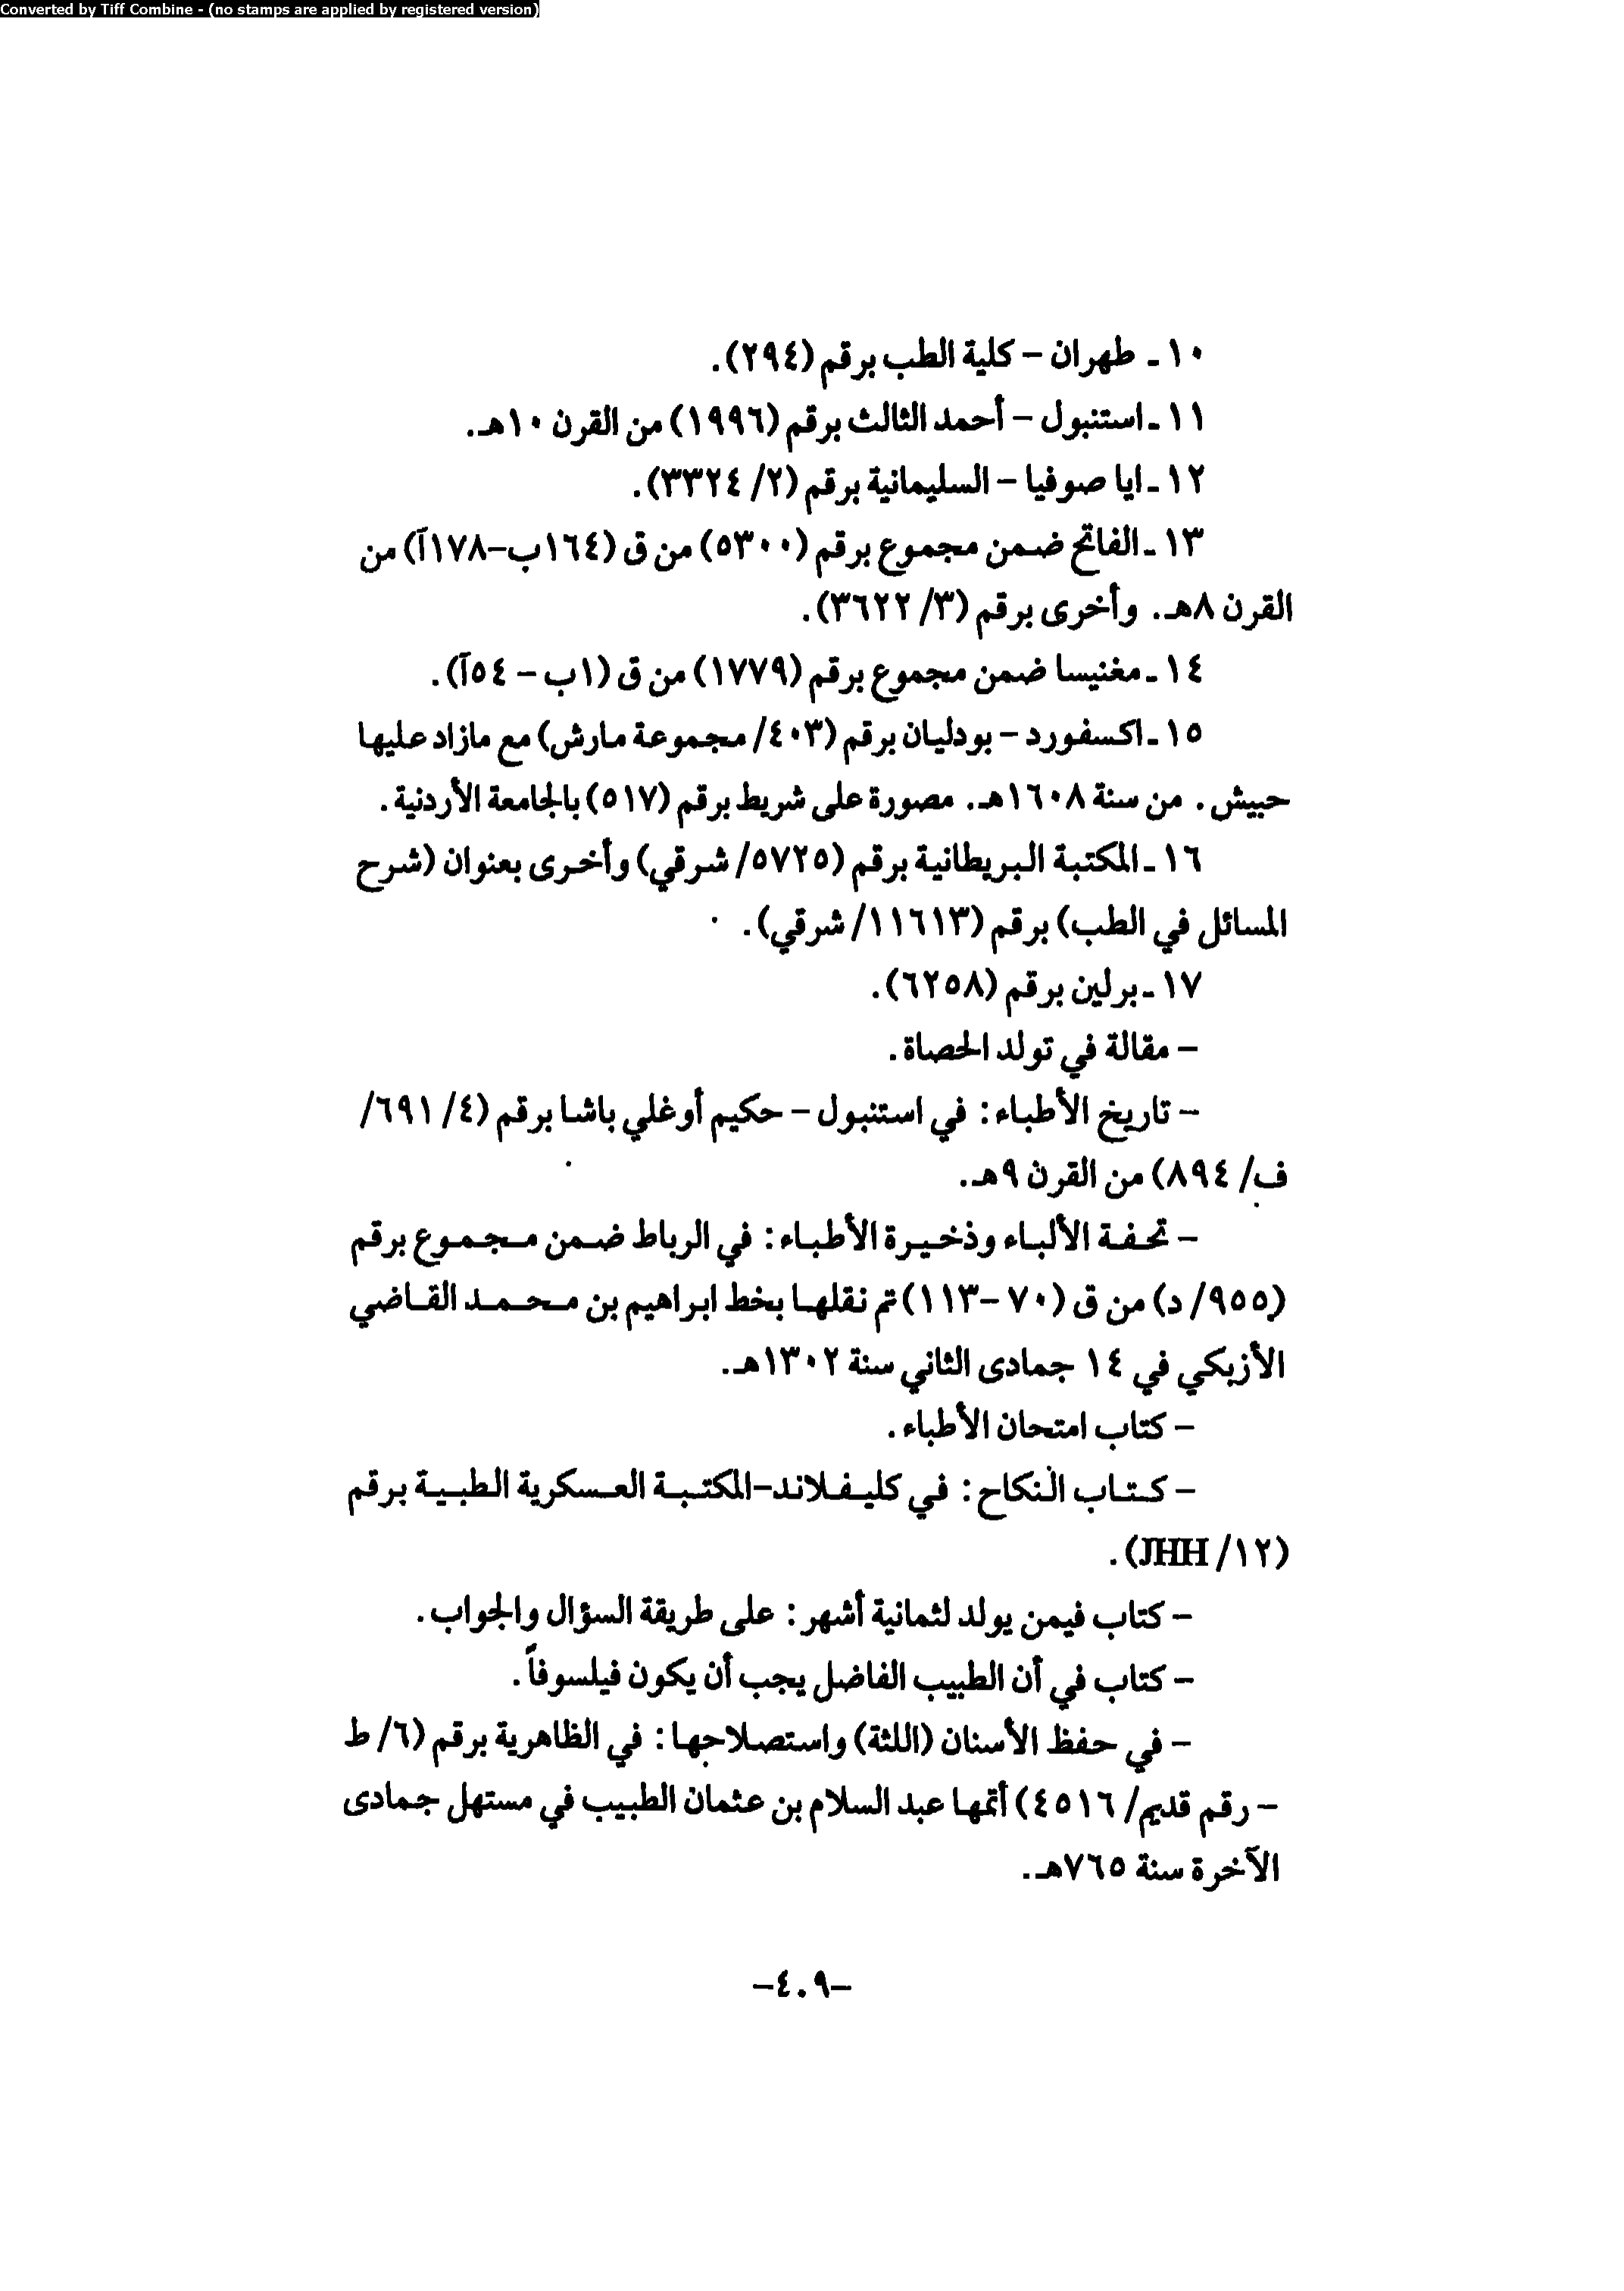 Converted by Tiff Combine - (no stamps are applied by registered version)
١٠ـ طهران – كلية الطب برقم (٢٩٤).
١١ـ استنبول – أحمد الثالث برقم (١٩٩٦) من القرن ١٠هـ.
١٢ـ ايا صوفيا – السليمانية برقم (٢/ ٣٣٢٤).
١٣ـ الفاتح ضمن مجموع برقم (٥٣٠٠) من ق (١٦٤ب–١٧٨آ) من
القرن ٨هـ. وأخرى برقم (٣/ ٣٦٢٢).
١٤ـ مغنيسا ضمن مجموع برقم (١٧٧٩) من ق (١ب – ٥٤آ).
١٥ـ اكسفورد – بودليان برقم (٤٠٣/ مجموعة مارش) مع مازاد عليها
حبيش. من سنة ١٦٠٨هـ. مصورة على شريط برقم (٥١٧) بالجامعة الأردنية.
١٦ـ المكتبة البريطانية برقم (٥٧٢٥/ شرقي) وأخرى بعنوان (شرح
المسائل في الطب) برقم (١١٦١٣/ شرقي).
١٧ـ برلين برقم (٦٢٥٨).
– مقالة في تولد الحصاة.
– تاريخ الأطباء: في استنبول – حكيم أوغلي باشا برقم (٤/ ٦٩١/
ف/ ٨٩٤) من القرن ٩هـ.
– تحفة الألباء وذخيرة الأطباء: في الرباط ضمن مجموع برقم
(٩٥٥/ د) من ق (٧٠–١١٣) تم نقلها بخط ابراهيم بن محمد القاضي
الأزبكي في ١٤ جمادى الثاني سنة ١٣٠٢هـ.
– كتاب امتحان الأطباء.
– كتاب النكاح: في كليفلاند–المكتبة العسكرية الطبية برقم
(١٢/ JHH).
– كتاب فيمن يولد لثمانية أشهر: على طريقة السؤال والجواب.
– كتاب في أن الطبيب الفاضل يجب أن يكون فيلسوفاً.
– في حفظ الأسنان (اللثة) واستصلاحها: في الظاهرية برقم (٦/ ط
– رقم قديم/ ٤٥١٦) أتمها عبد السلام بن عثمان الطبيب في مستهل جمادى
الآخرة سنة ٧٦٥هـ.
–٤٠٩–